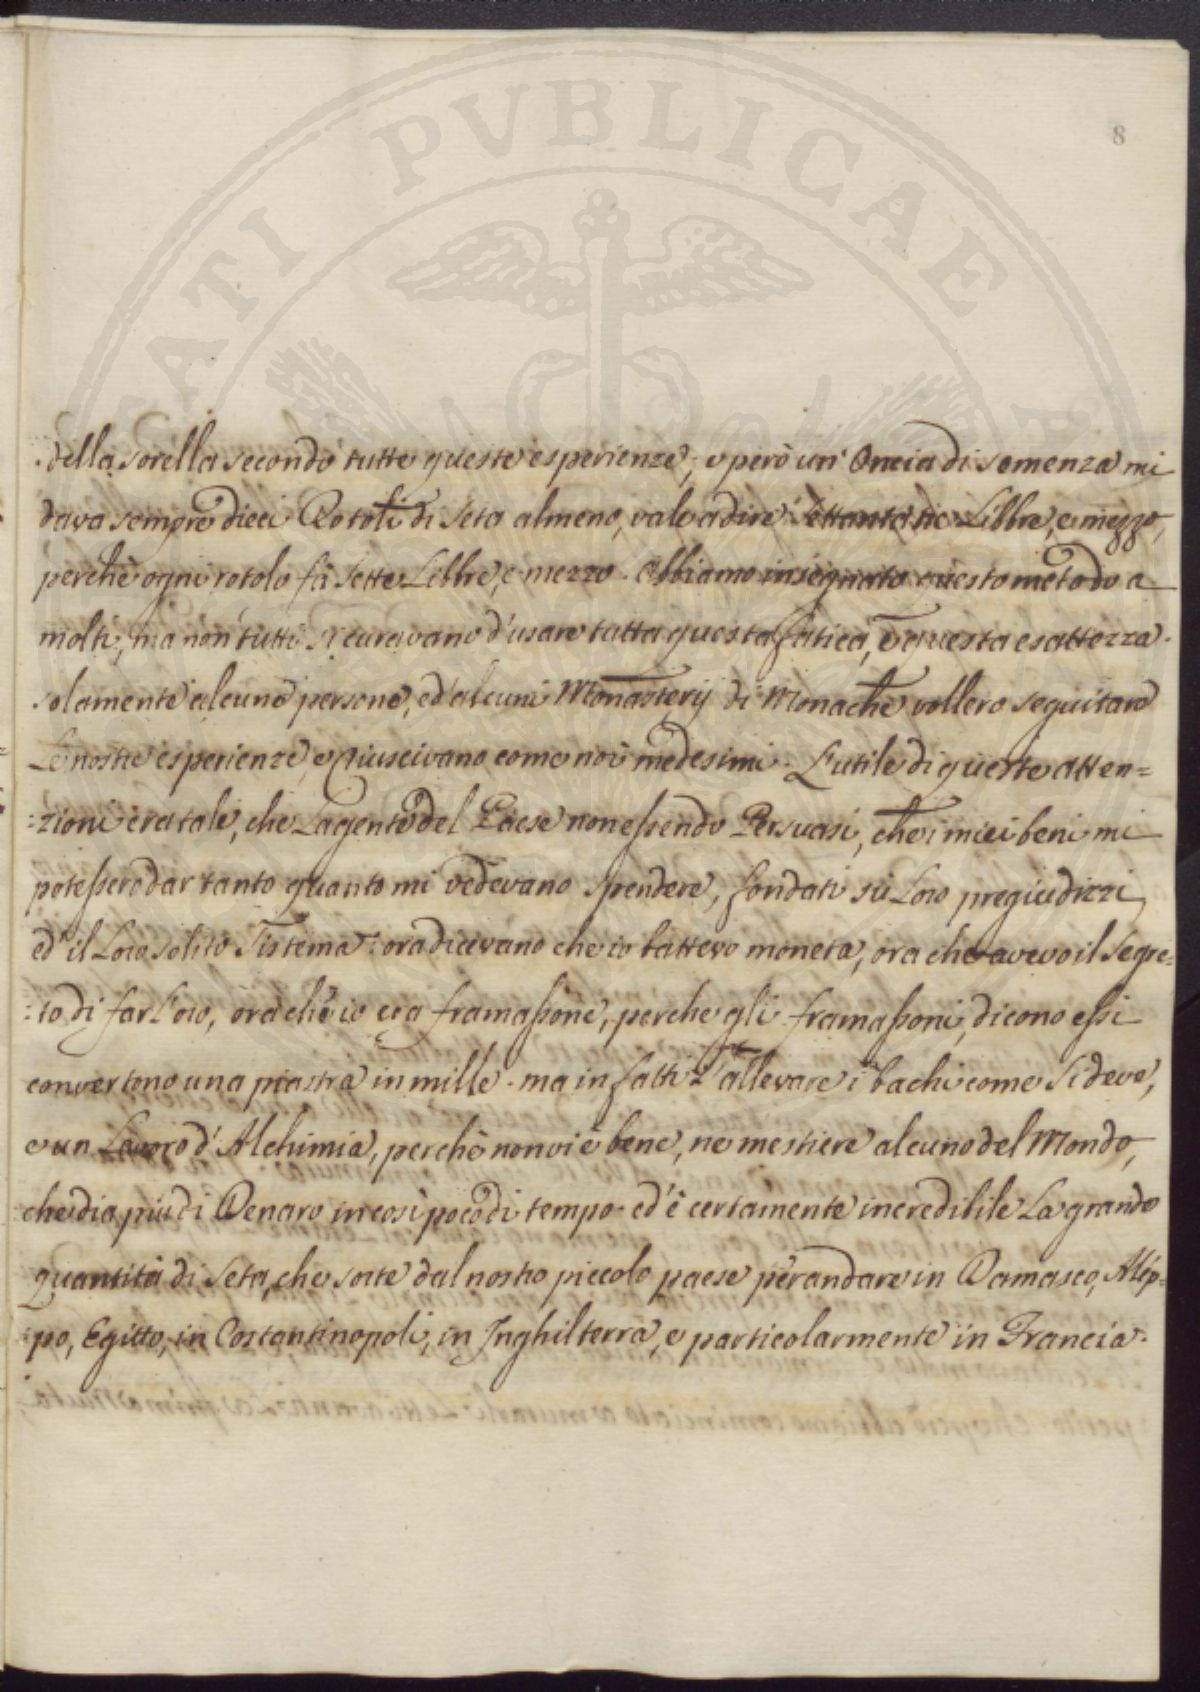 PUBLICAE
8
della sorella secondo tutte queste esperienze; e però un' Oncia di semenza mi
dava sempre dieci Rotoli di Seta almeno, vale a dire Settanta tre Libbre, e mezzo,
perchè ogni rotolo fà Sette Libbre, e mezzo. Abbiamo insegnato questo metodo a
molti, ma non tutti si curavano d'usare tutta questa fatica, e questa esattezza.
solamente alcune persone, ed'alcuni Monasterij di Monache vollero seguitare
Le nostre esperienze, e Riuscivano come noi medesimi. L'utile di queste atten=
=zioni era tale, che La gente del Paese non essendo Persuasi, che i miei beni mi
potessero dar tanto quanto mi vedevano spendere, fondati sù Loro pregiudizzi
ed' il Loro solito Sistema: ora dicevano che io battevo moneta, ora che avevo il Segre=
=to di far L'oro, ora che io era framassone, perche gli framassoni, dicono essi
convertono una piastra in mille. ma in fatti L'allevare i bachi come Si deve,
e un Lavoro d'Alchimia, perchè non vi è bene, ne mestiere alcuno del Mondo,
che dia piu di Denaro in cosi poco di tempo. ed'è certamente incredibile La grande
quantità di Seta, che sorte dal nostro piccolo paese per andare in Damasco, Alép=
=po, Egitto, in Costantinopoli, in Inghilterra, e particolarmente in Francia.